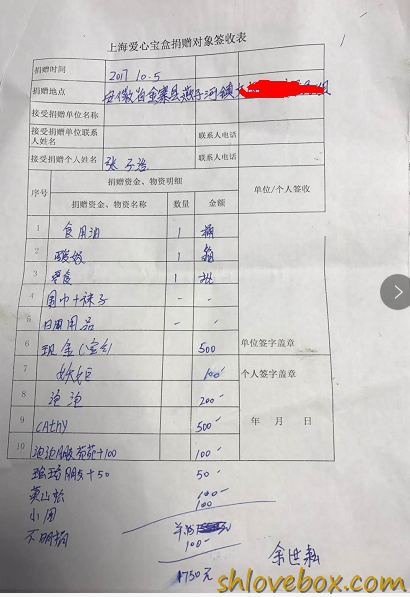 上海爱心宝盒捐赠对象签收表
捐赠时间 2017.10.5
捐赠地点 安徽省金寨县燕子河镇
接受捐赠单位名称
接受捐赠单位联系人姓名 联系人电话
接受捐赠个人姓名 张子浩 联系人电话
序号 捐赠资金、物资明细 单位/个人签收
捐赠资金、物资名称 数量 金额
1 食用油 1 桶
2 酸奶 1 箱
3 零食 1 批
4 围巾+袜子 - -
5 日用用品 - -
6 现金 500 单位签字盖章
7 妖姬 100 个人签字盖章
8 泡泡 200
9 CAthy 500 年 月 日
10 泡泡朋友茹茹+100 100
朋友+50 50
英山松 100
小周 100
100
1750元
shlovebox.com